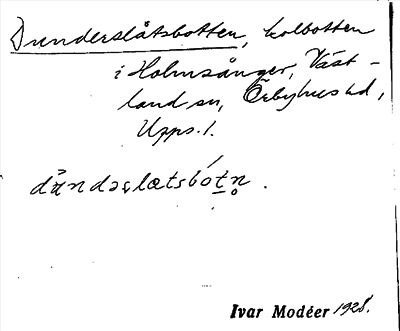 Dunderslåtsbotten, kolbotten
i Holmsånger, Väst-
land sn, Örbyhus hd,
Upps. l.
dånd
Ivar Modéer 1928.